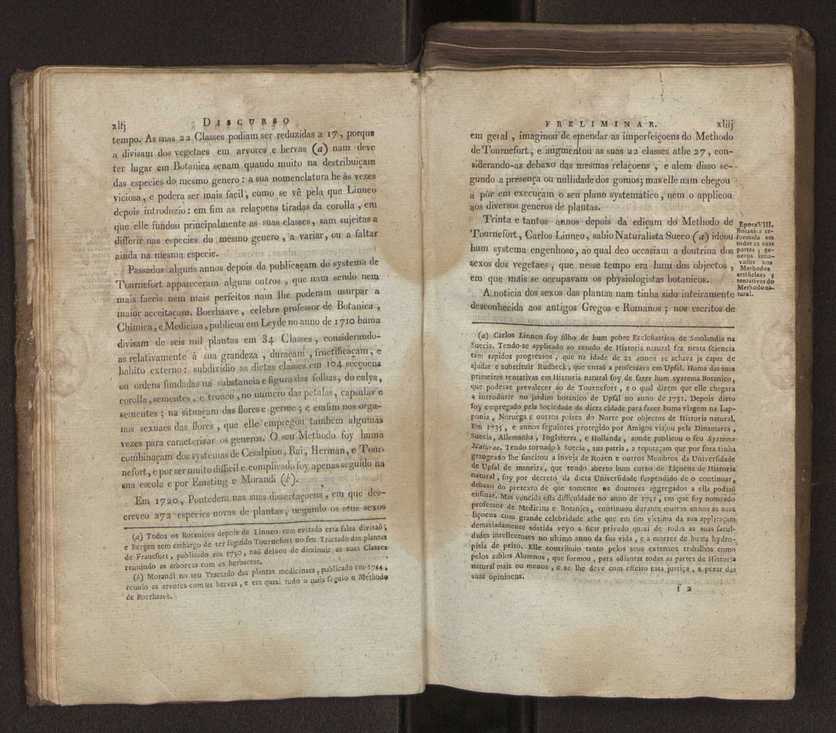 xlij
DISCURSO
tempo. As suas 22 Classes podiam ser reduzidas a 17, porque
a divisam dos vegetaes em arvores e hervas (a) nam deve
ter lugar em Botanica senam quando muito na destribuiçam
das especies do mesmo genero: a sua nomenclatura he às vezes
viciosa, e podera ser mais facil, como se vê pela que Linneo
depois introduzio: em fim as relaçoens tiradas da corolla, em
que elle fundou principalmente as suas classes, sam sujeitas a
differir nas especies do mesmo genero, a variar, ou a faltar
ainda na mesma especie.
Passados alguns annos depois da publicaçam do systema de
Tournefort appareceram alguns outros, que nam sendo nem
mais faceis nem mais perfeitos nam lhe poderam usurpar a
maior acceitaçam. Boerhaave, celebre professor de Botanica,
Chimica, e Medicina, publicou em Leyde no anno de 1710 huma
divisam de seis mil plantas em 34 Classes, considerando-
as relativamente á sua grandeza, duraçam, fructificaçam, e
habito externo: subdividio as dictas classes em 104 secçoens
ou ordens fundadas na substancia e figura das folhas, do calyx,
corolla, sementes, e tronco, no numero das petalas, capsulas e
sementes; na situaçam das flores e germe; e emfim nos orga-
nos sexuaes das flores, que elle empregou tambem algumas
vezes para caracterisar os generos. O seu Methodo foy huma
combinaçam dos systemas de Cesalpino, Rai, Herman, e Tour-
nefort, e por ser muito difficil e complicado foy apenas seguido na
sua escola e por Ernsting e Morandi (b).
Em 1720, Pontedera nas suas dissertaçoens, em que des-
creveo 272 especies novas de plantas, segundo os seus sexos
(a) Todos os Botanicos depois de Linneo tem evitado esta falsa divisaõ;
e Bergen sem embargo de ter seguido Tournefort no seu Tractado das plantas
de Francfort, publicado em 1750, naõ deixou de diminuir as suas Classes
reunindo as arboreas com as herbaceas.
(b) Morandi no seu Tractado das plantas medicinaes, publicado em 1744,
reunio as arvores com as hervas, e em quasi tudo o mais seguio o Methodo
de Boerhaave.
PRELIMINAR.
xliij
em geral, imaginou de emendar as imperfeiçoens do Methodo
de Tournefort, e augmentou as suas 22 classes athe 27, con-
siderando-as debaxo das mesmas relaçoens, e alem disso se-
gundo a presença ou nullidade dos gomos; mas elle nam chegou
a pôr em execuçam o seu plano systematico, nem o applicou
aos diversos generos de plantas.
Trinta e tantos annos depois da ediçam do Methodo de
Tournefort, Carlos Linneo, sabio Naturalista Sueco (a) ideou
hum systema engenhoso, ao qual deo occasiam a doutrina dos
sexos dos vegetaes, que nesse tempo era hum dos objectos,
em que mais se occupavam os physiologistas botanicos.
A noticia dos sexos das plantas nam tinha sido inteiramente
desconhecida aos antigos Gregos e Romanos; nos escritos de
Epoca VIII.
Botanica re-
formada em
todas as suas
partes; ge-
neros inno-
vados nos
Methodos
artificiaes;
tentativas do
Methodo na-
tural.
(a) Carlos Linneo foy filho de hum pobre Ecclesiastico de Smolandia na
Suecia. Tendo-se applicado ao estudo de Historia natural fez nesta sciencia
tam rapidos progressos, que na idade de 22 annos se achava ja capaz de
ajudar e substituir Rudbeck, que entaõ a professava em Upsal. Huma das suas
primeiras tentativas em Historia natural foy de fazer hum systema Botanico,
que podesse prevalecer ao de Tournefort, e o qual dizem que elle chegara
a introduzir no jardim botanico de Upsal no anno de 1731. Depois disto
foy empregado pela Sociedade da dicta cidade para fazer huma viagem na Lap-
ponia, Noruega e outros paizes do Norte por objectos de Historia natural.
Em 1735, e annos seguintes protegido por Amigos viajou pela Dinamarca,
Suecia, Allemanha, Inglaterra, e Hollanda, aonde publicou o seu Systema
Naturae. Tendo tornado à Suecia, sua patria, a reputaçam que por fora tinha
grangeado lhe suscitou a inveja de Rozen e outros Membros da Universidade
de Upsal de maneira, que tendo aberto hum curso de Liçoens de Historia
natural, foy por decreto da dicta Universidade suspendido de o continuar,
debaxo do pretexto de que somente os doutores aggregados a ella podiaõ
ensinar. Mas vencida esta difficuldade no anno de 1741, em que foy nomeado
professor de Medicina e Botanica, continuou durante muitos annos as suas
liçoens com grande celebridade athe que em fim victima da sua applicaçam
demasiadamente aturada veyo a ficar privado quasi de todas as suas facul-
dades intellectuaes no ultimo anno da sua vida, e a morrer de huma hydro-
pisia de peito. Elle contribuio tanto pelos seus extensos trabalhos como
pelos sabios Alumnos, que formou, para adiantar todas as partes de Historia
natural mais ou menos, e se lhe deve com effeito esta justiça, a pezar das
suas opinioens.
f 2